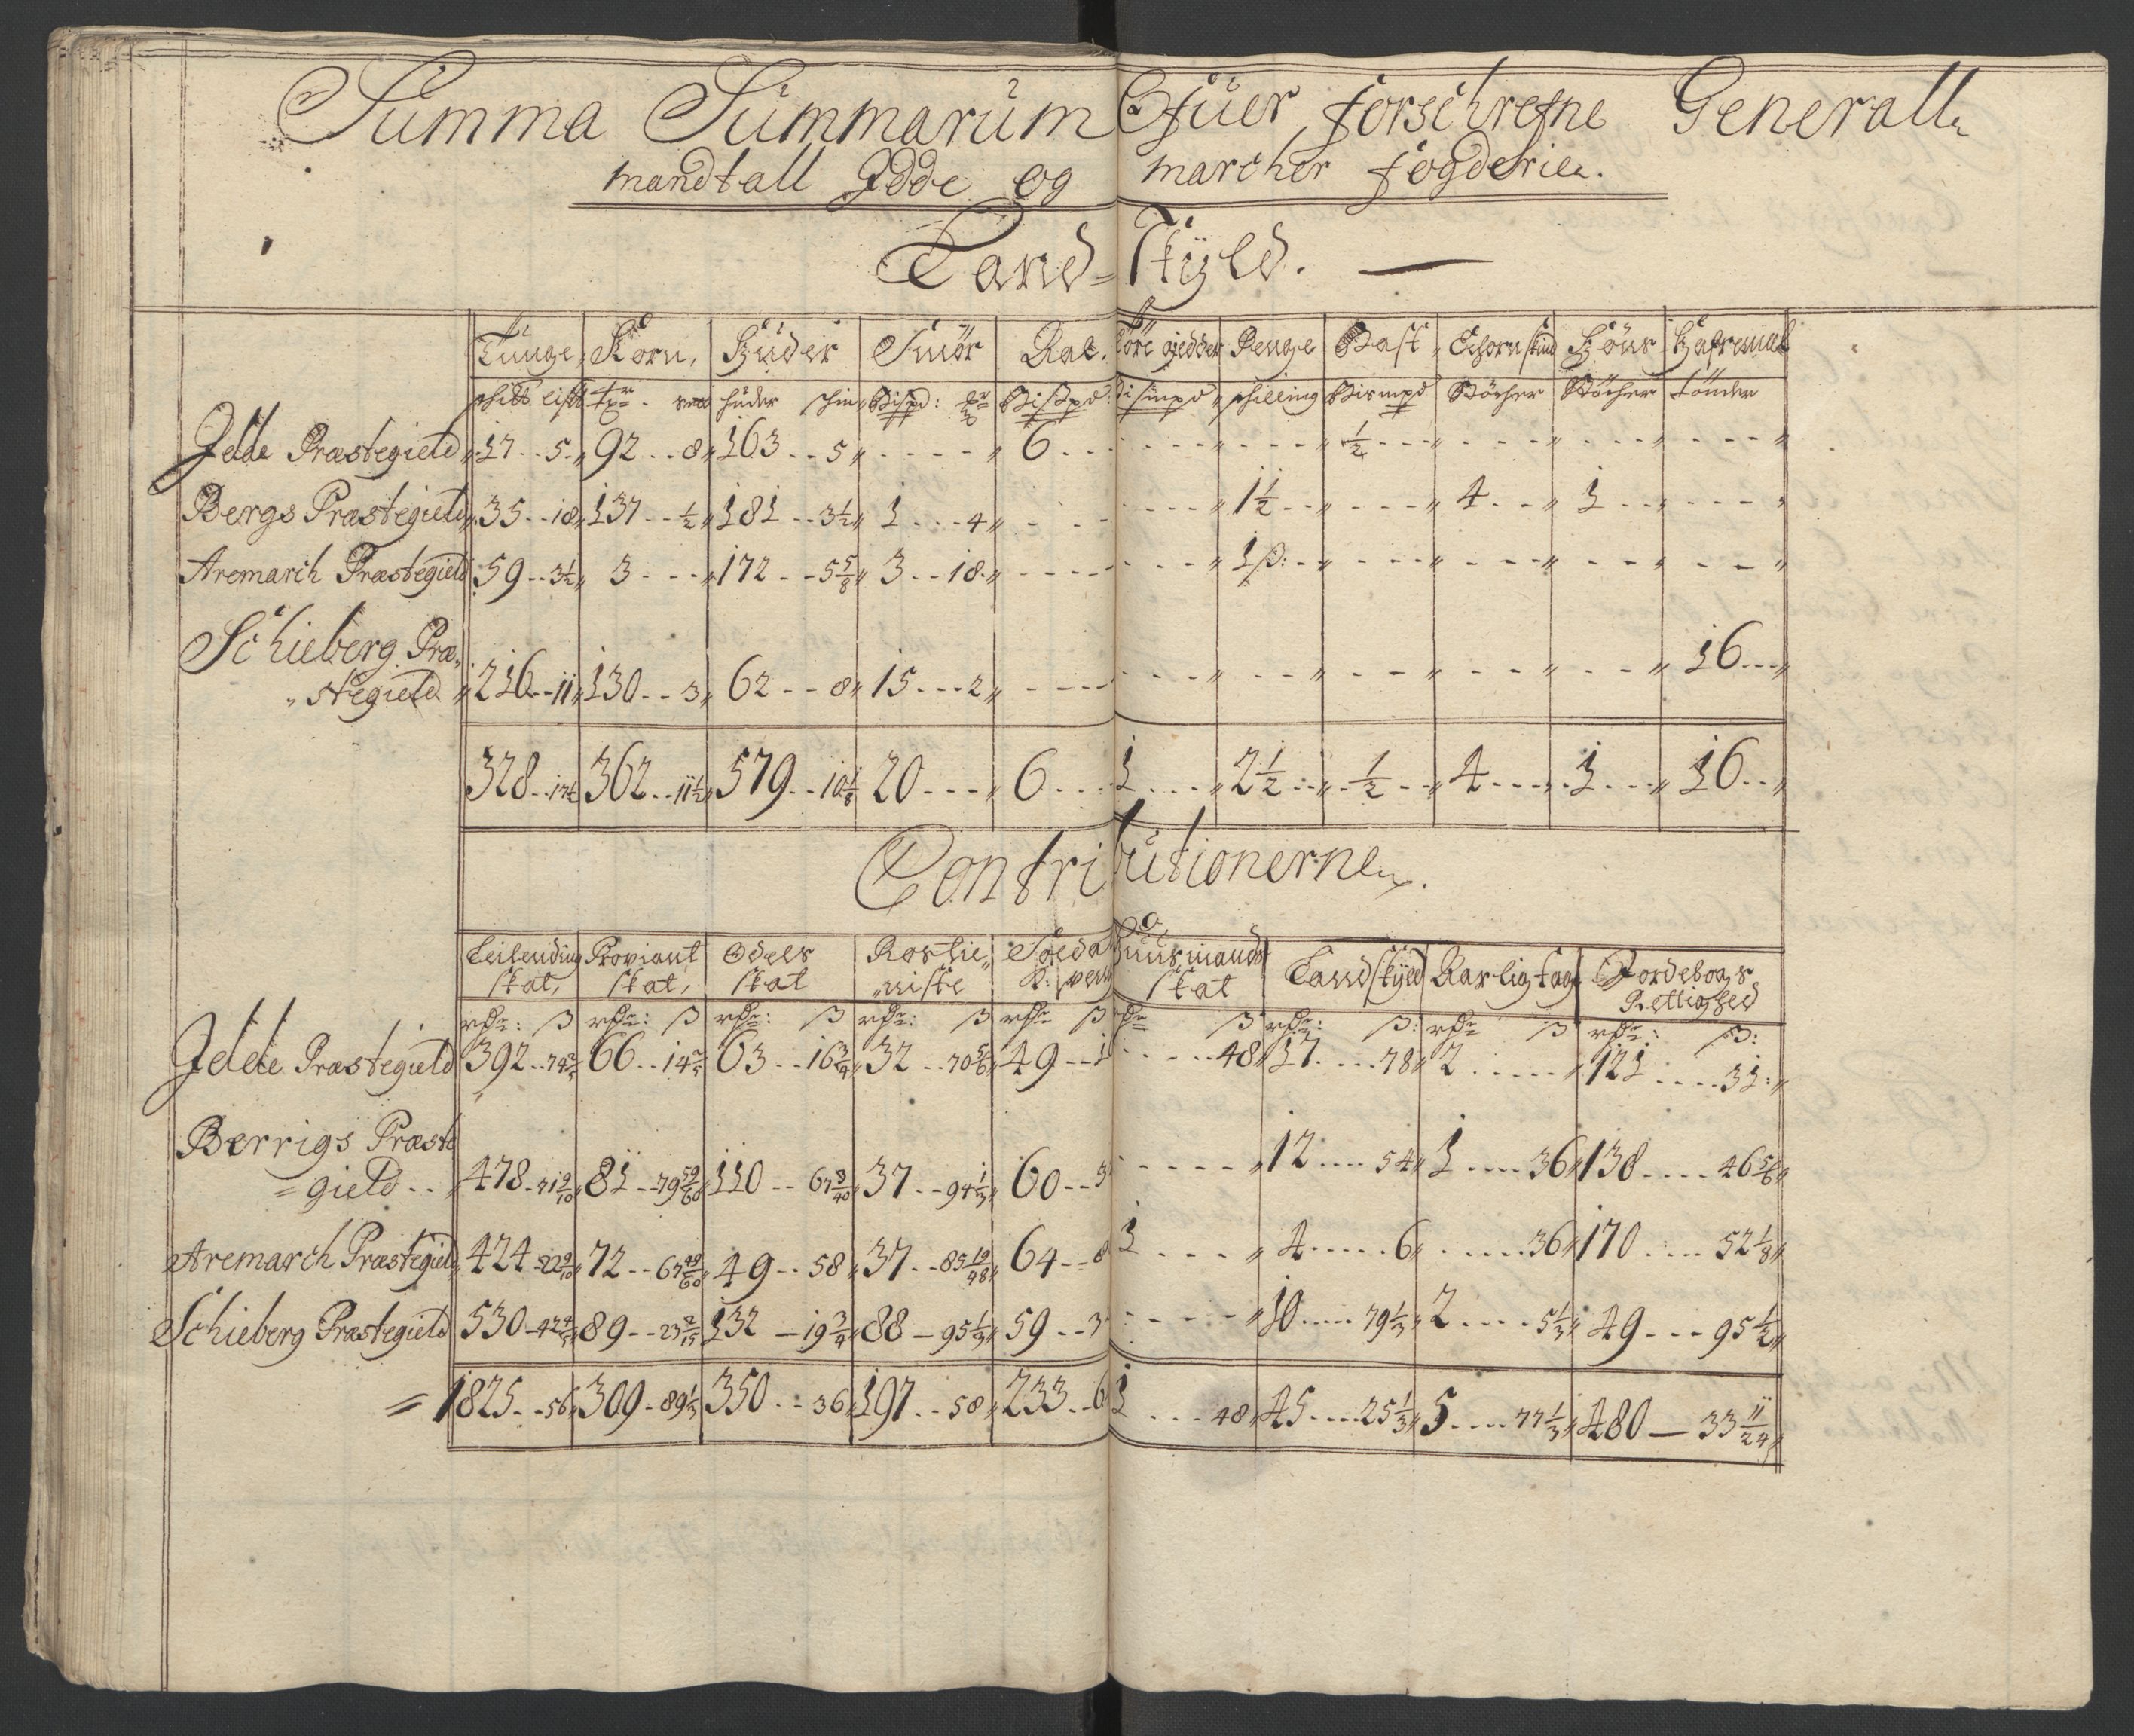 Summa Summarum Ofuer forschrefne Generall
mandtall Idde og marcher fogderie.
Land-Skÿld.
Tunge, Korn, Huder Smör Rae. Töre giedder Penge Bast Echornskind Höns Hafremal
schpd lispd tr. huder schin Bispd: Bispd. Bismpd schilling Bismpd Störcher Störcher tönder
Idde Præstegield 17 .. 5 92 .. 8 163 .. 5 6 1/2
Bergs Præstegield 35 .. 18 137 .. 1/2 181 .. 3 1/2 1 ... 4 1 1/2 4 1
Aremarch Præstegield 59 .. 3 1/2 3 172 .. 5 5/8 3 .. 18 1 ß:
Schieberg Præ-
stegield 216 .. 11 130 .. 3 62 .. 8 15 ... 2 16
328 .. 17 1/2 362 .. 11 1/2 579 .. 10 1/8 20 6 1 2 1/2 1/2 4 1 16
Contributionerne.
Leilending Proviant Odels Rostie- Huusmands Landskÿld Kaarligtage Jordebogs
skat, skat, skat niste skat Rettighed
rdr: ß rdr: ß rdr: ß rdr: ß rdr ß ß rdr: ß: rdr ß rdr: ß:
Idde Præstegield 392 .. 74 66 .. 14 63 .. 16 3/4 32 .. 70 5/6 49 .. 1 48 17 .... 78 2 121 .... 31
Berrigs Præste
= gield .. 478 . 71 9/10 81 .. 79 59/60 110 .. 67 37 .. 94 1/3 60 .. 3 12 .... 54 1 .... 36 138 .... 46 5/6
Aremarch Præstegield 424 . 22 9/10 72 .. 67 49/60 49 .. 58 37 .. 85 19/48 64 .. 8 1 4 ..... 6 36 170 .... 52 1/8
Schieberg Præstegield 530 - 42 4/5 89 .. 23 2/15 132 - 19 3/4 88 - 95 1/3 59 .. 3 10 .... 79 1/3 2 .... 5 1/3 49 ... 95 1/2
= 1825 .. 56 309 - 89 1/3 350 .. 36 197 .. 58 233 .. 6 1 ... 48 45 .... 25 1/3 5 .... 77 1/3 480 — 33 11/24